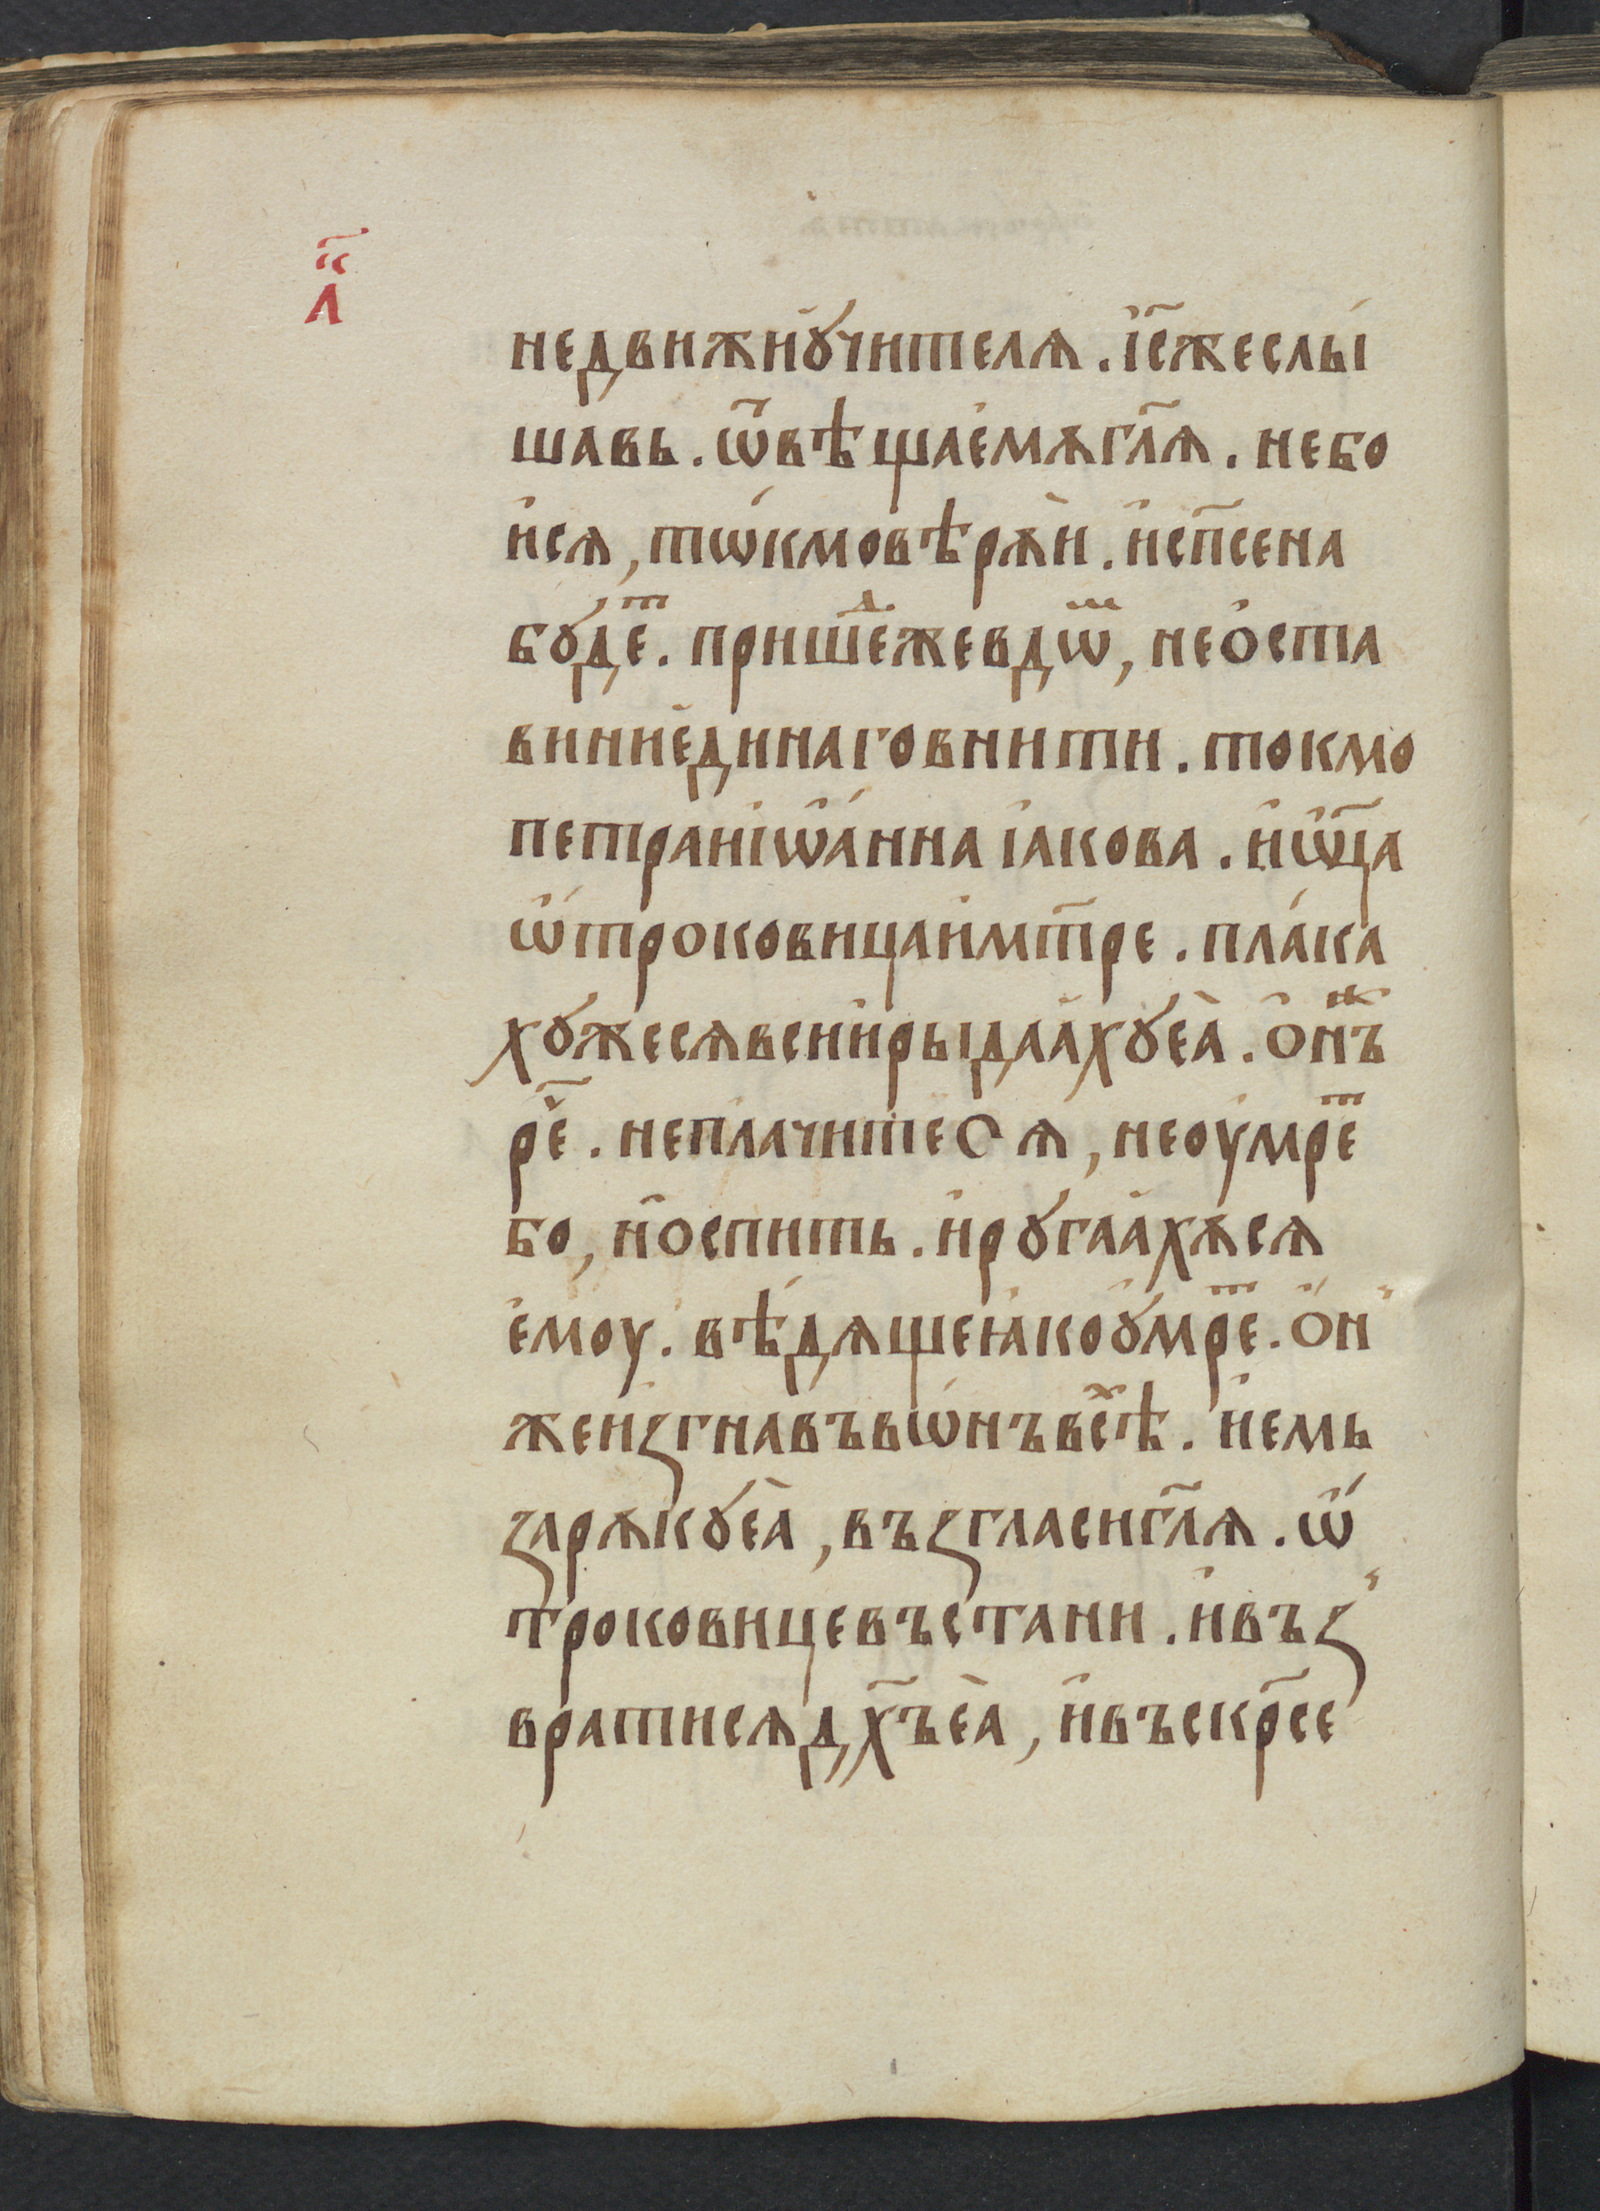 л҃
недвижиꙋчителѧ . і҃сжеслы
шавь . ѿвѣщаемѫгл҃ѧ . небо
йсѧ , тѡкмовѣрѫи . исп҃сена
бꙋдеⷮ . пришеⷣжевдѡⷨ , неѻста
виниединаговнити . токмо
петраніѡ́аннаіакова . иѿ҃ца
ѡ҆́троковицаим҃тре . пла́ка
хꙋжесѧвсиирыдаахꙋеѧ̀ . ѻнъⷤ
реⷱ҇ . неплачитеСѧ , неоумреⷮ
бо , нѻспить . ирꙋгаахѫсѧ
емоу . вѣ́дѧщеꙗкоꙋмреⷮ . ѻ́н
жеизгнавъвѡ́нъвсѣⷯ . иемь
зарѫкꙋеа̀ , възгласигл҃ѧ . ѡ҆́
троковицевъстани . ивъз
вратисѧдх҃ъеа̀ , ивъскр҃се